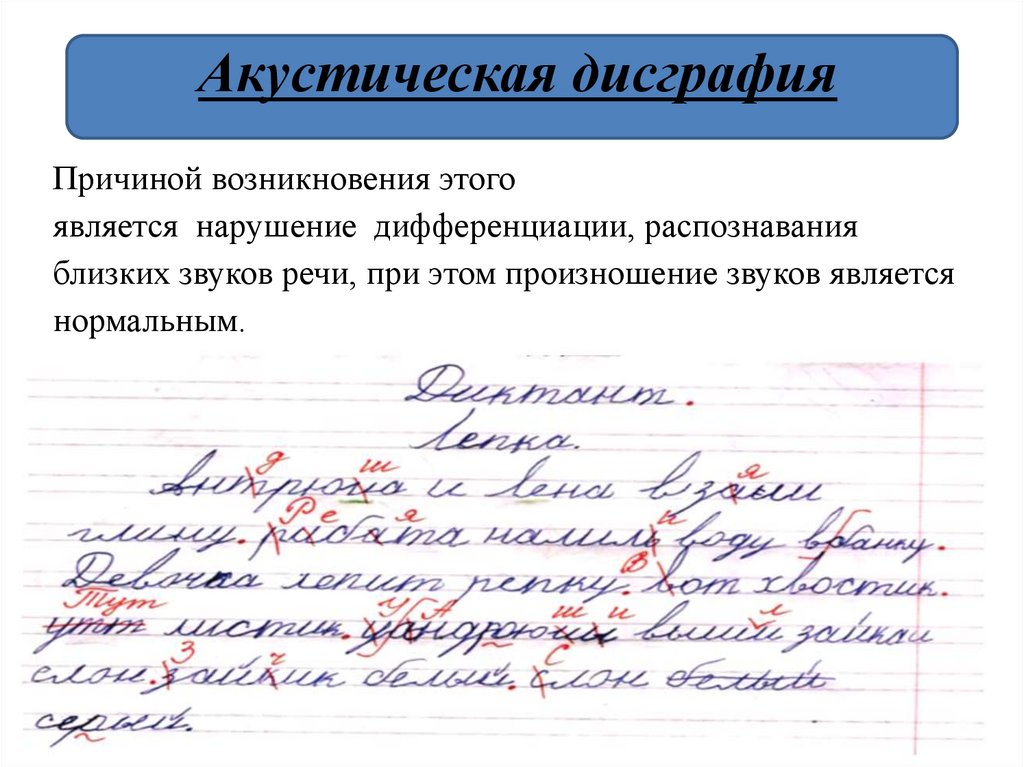 Акустическая дисграфия
Причиной возникновения этого
является нарушение дифференциации, распознавания
близких звуков речи, при этом произношение звуков является
нормальным.
Диктант.
Лепка.
д ш я
Антрюша и Лена взали
Ре я и
глину. рабата намиль воду в банку.
В
Девочка лепит репку. вот хвостик.
Тут У А ш и л
утт листик. уандрюшы вышли зайка и
З ч С
слон. зайкик белый. слон белый
серый.